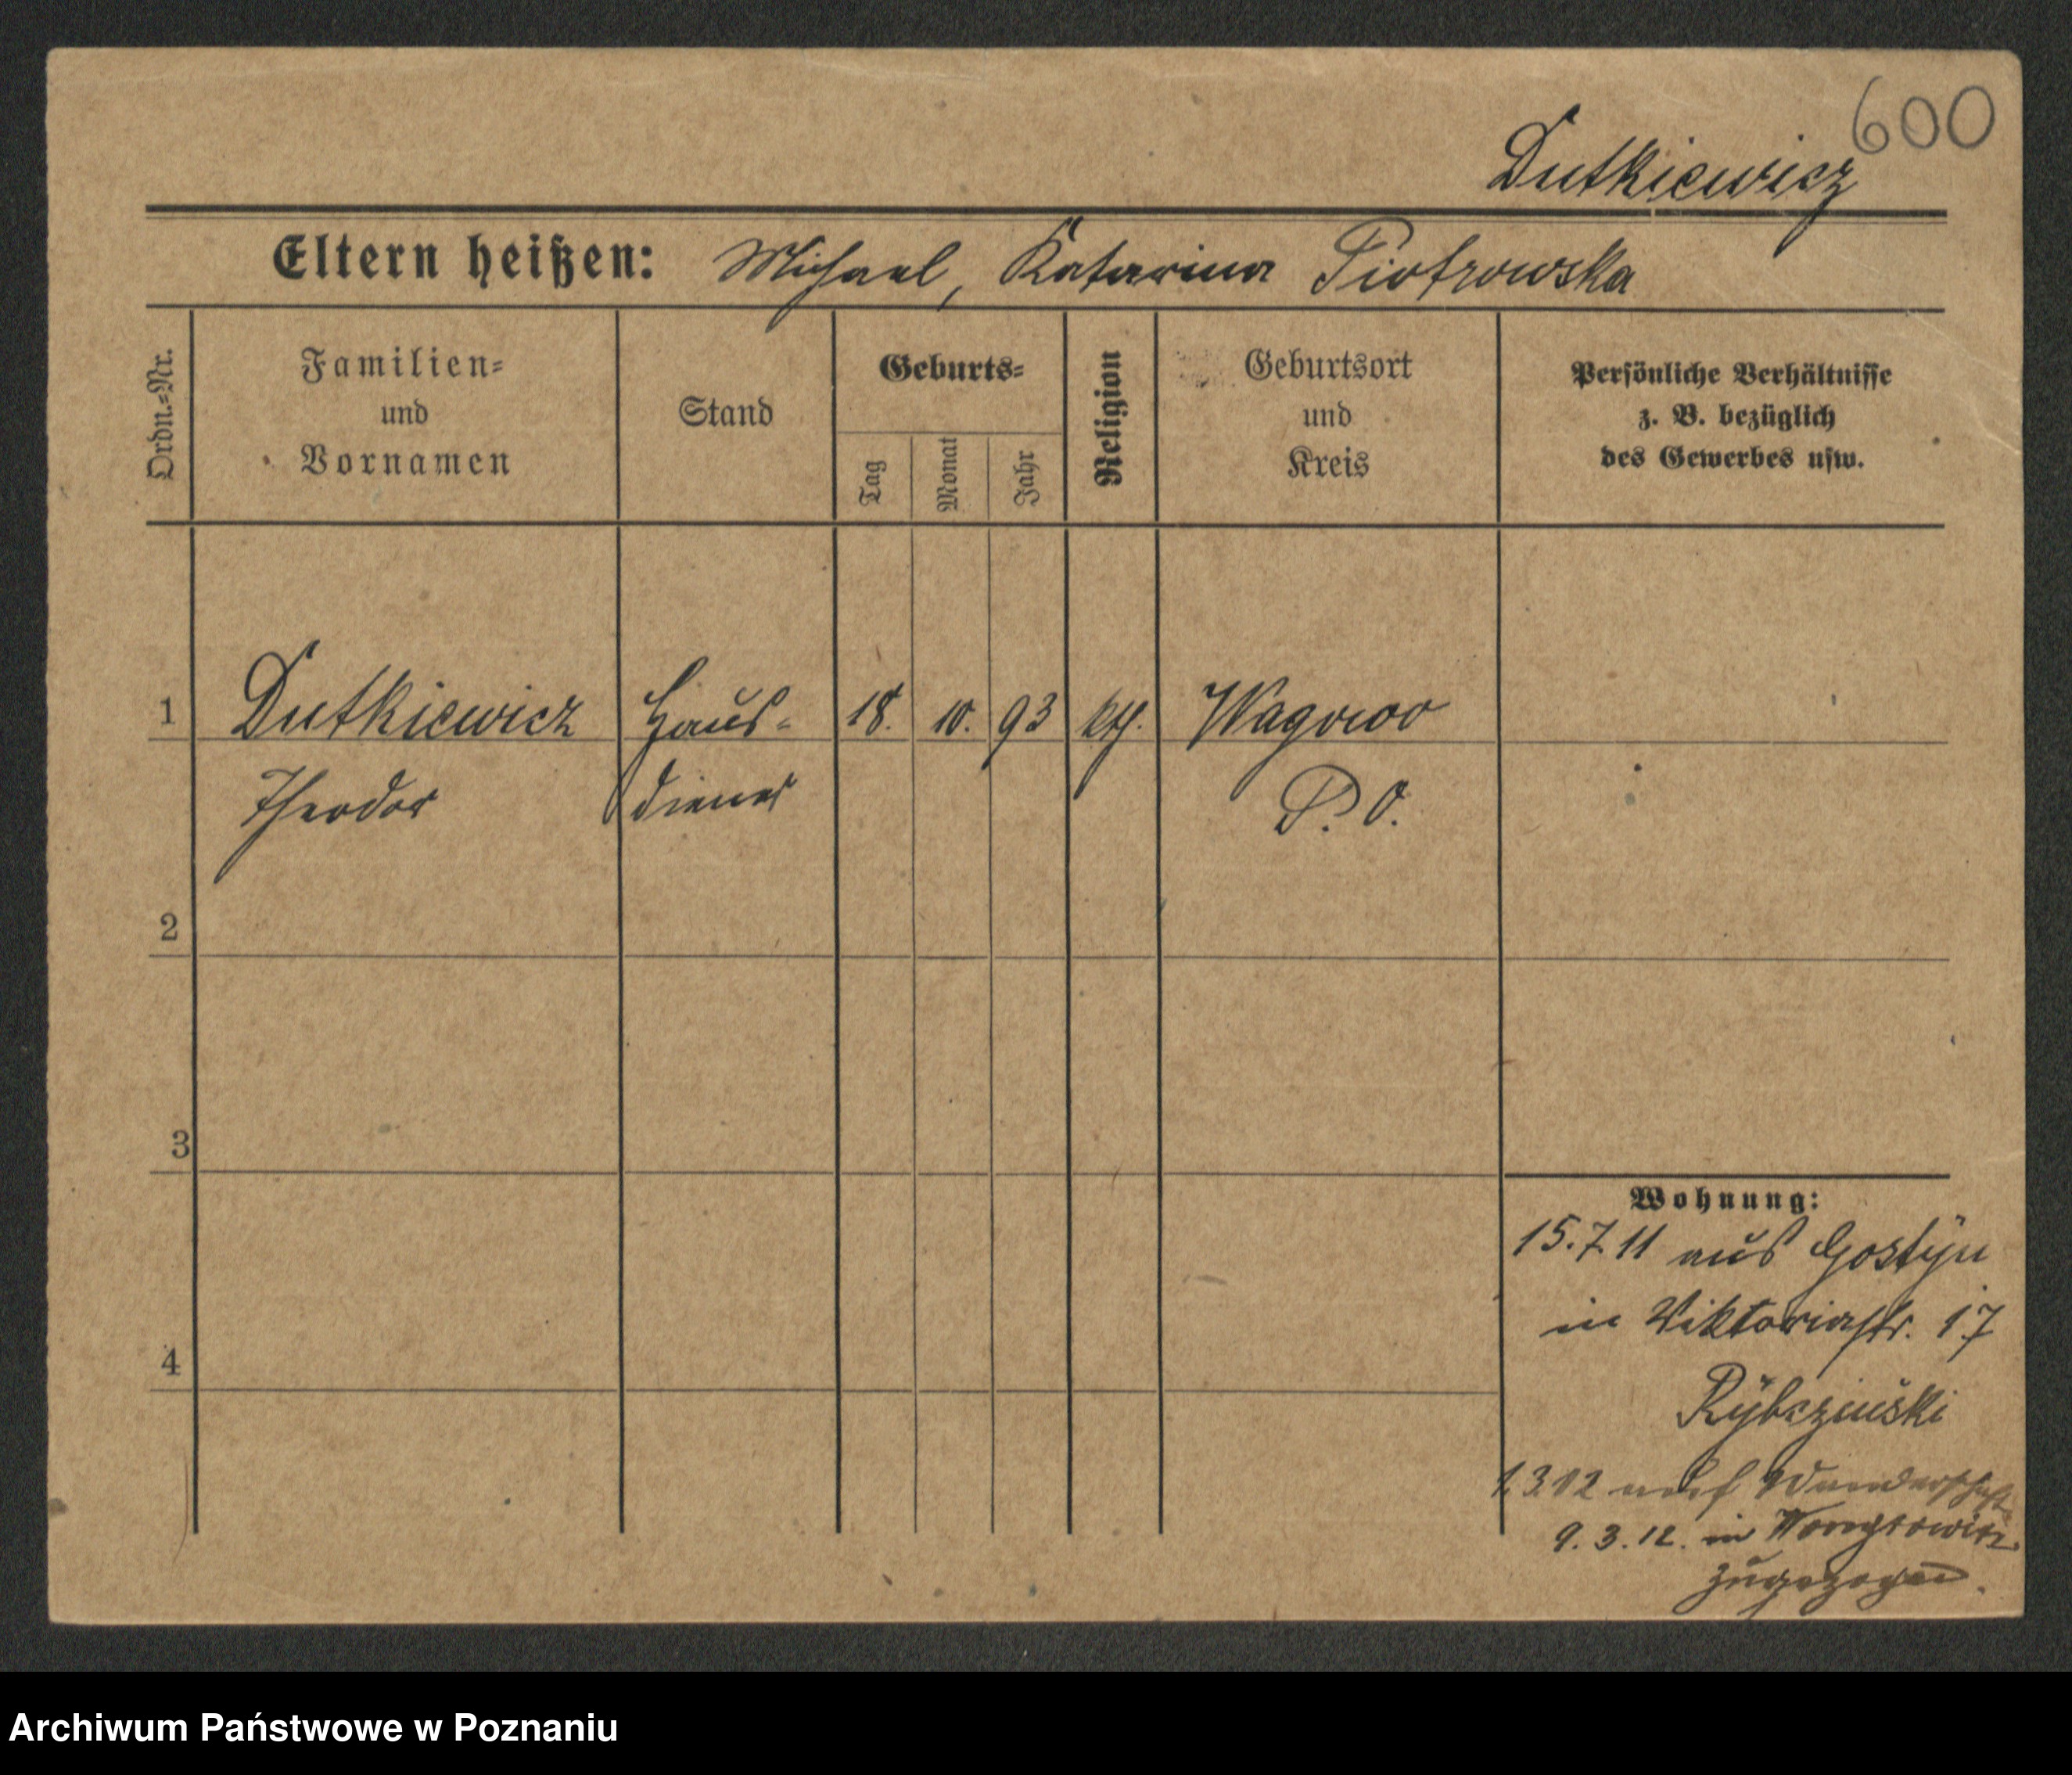 600
Dutkiewicz
Eltern heißen: Michael, Katarina Piotrowska
Ordn.-Nr.
Familien-
und
Vornamen
Stand
Geburts-
Tag
Monat
Jahr
Religion
Geburtsort
und
Kreis
Persönliche Verhältnisse
z. B. bezüglich
des Gewerbes usw.
1 Dutkiewicz Haus- 18. 10. 93 kth. Wagowo
Theodor diener P. O.
2
3
4
Wohnung:
15.7.11 aus Gostÿn
in Viktoriastr. 17
Rÿbczinski
1.3.12 auf Wanderschaft
9. 3. 12. in
zugezogen.
Archiwum Państwowe w Poznaniu